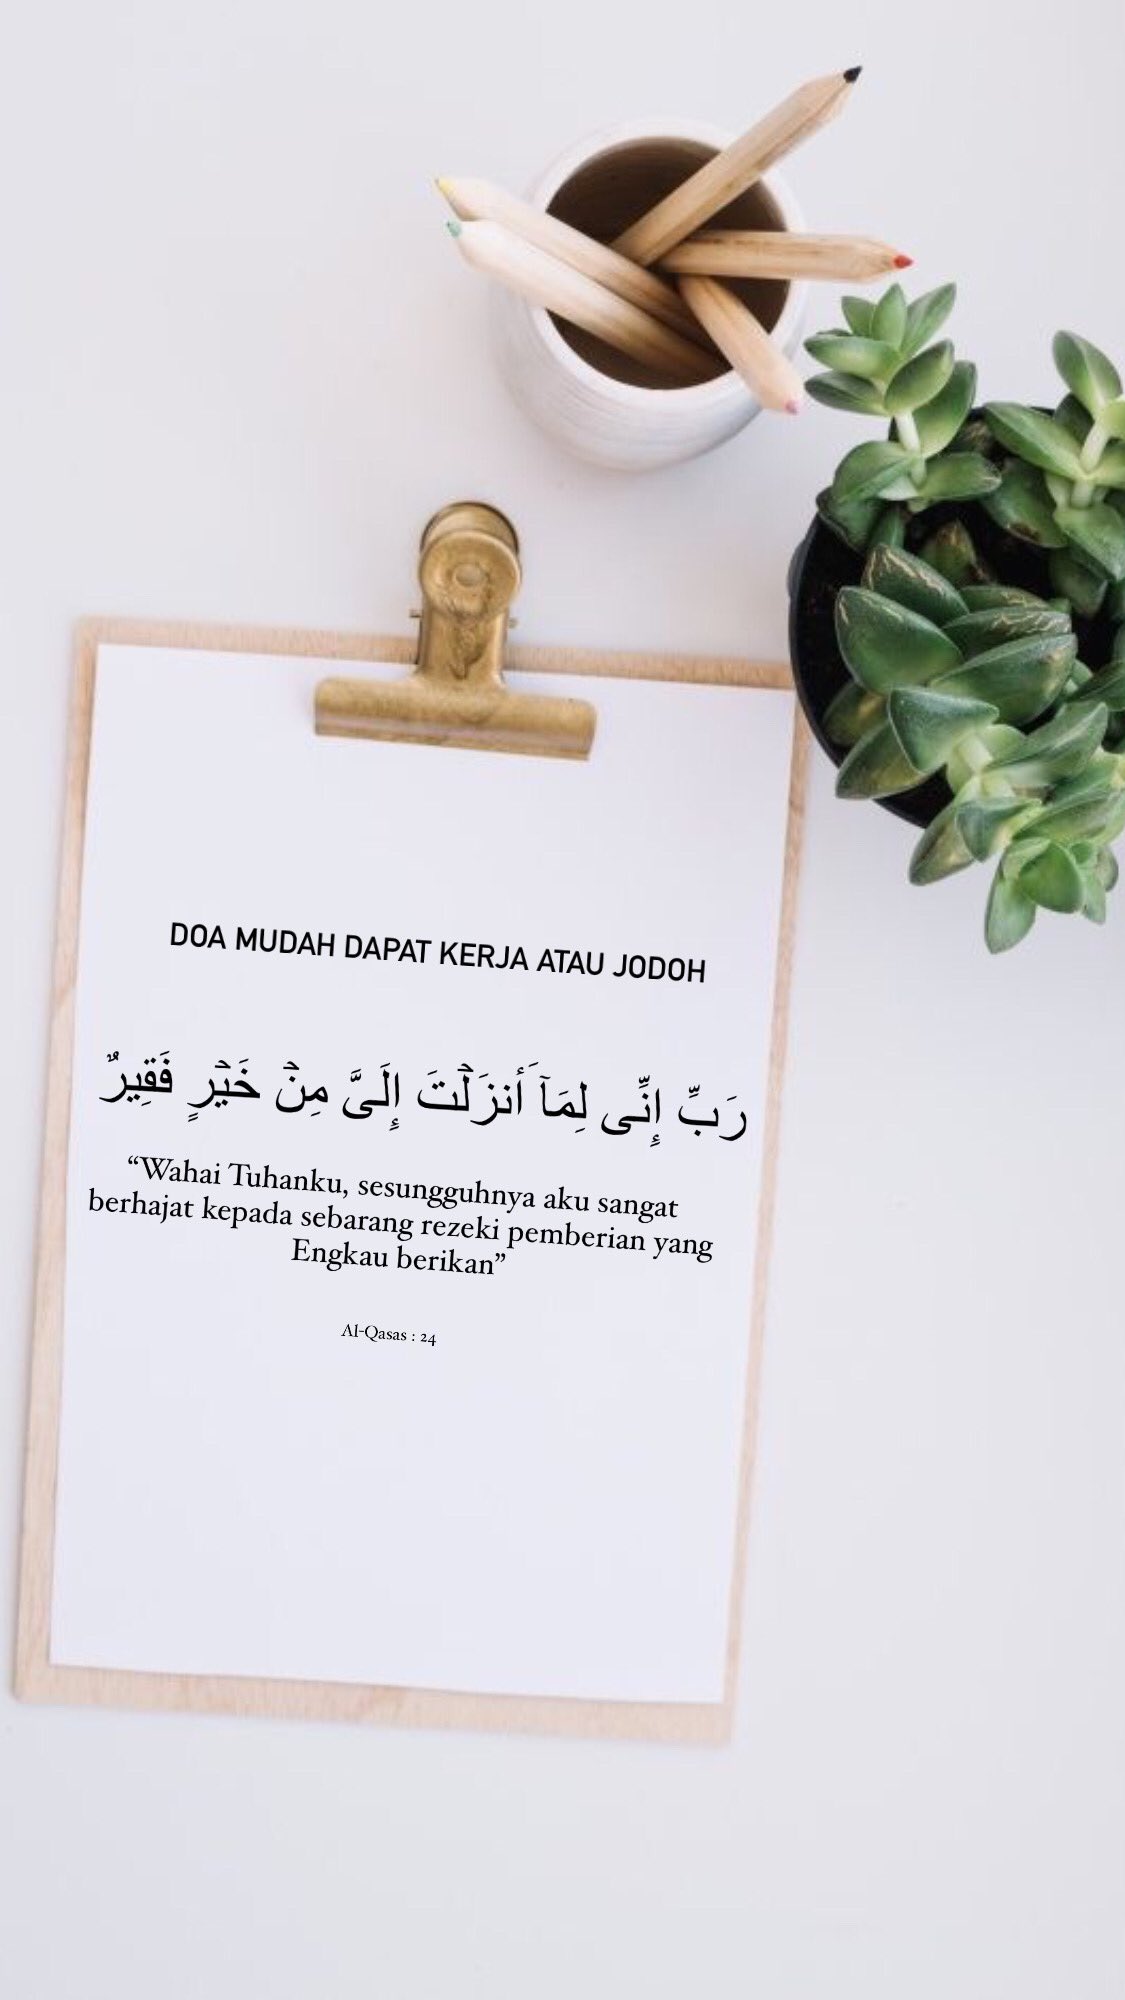 DOA MUDAH DAPAT KERJA ATAU JODOH
رَبِّ إِنِّى لِمَآ أَنزَلْتَ إِلَىَّ مِنْ خَيْرٍ فَقِيرٌ
“Wahai Tuhanku, sesungguhnya aku sangat
berhajat kepada sebarang rezeki pemberian yang
Engkau berikan”
Al-Qasas : 24